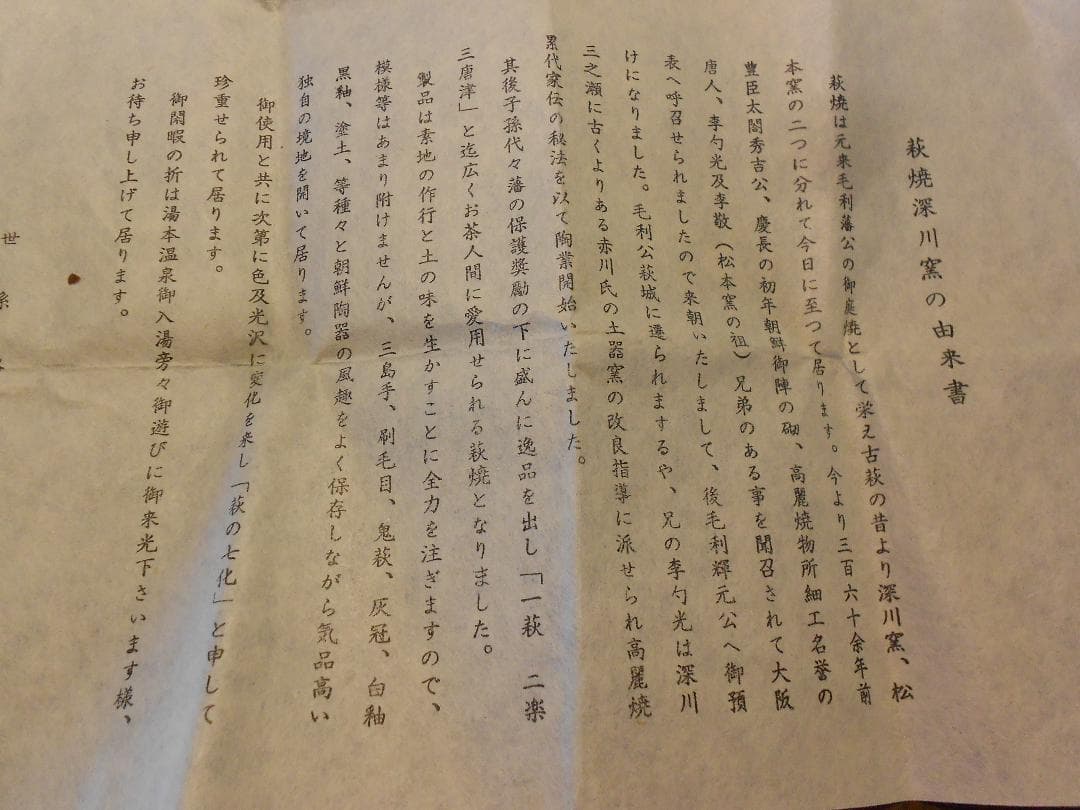 萩焼深川窯の由来書
萩焼は元来毛利藩公の御庭焼として栄え古萩の昔より深川窯、松
本窯の二つに分れて今日に至つて居ります。今より三百六十余年前
豊臣太閤秀吉公、慶長の初年朝鮮御陣の砌、高麗焼物所細工名誉の
唐人、李勺光及李敬（松本窯の祖）兄弟のある事を聞召されて大阪
表へ呼召せられましたので来朝いたしまして、後毛利輝元公へ御預
けになりました。毛利公萩城に遷られまするや、兄の李勺光は深川
三之瀬に古くよりある赤川氏の土器窯の改良指導に派せられ高麗焼
累代家伝の秘法を以て陶業開始いたしました。
其後子孫代々藩の保護奨励の下に盛んに逸品を出し「一萩 二楽
三唐津」と迄広くお茶人間に愛用せられる萩焼となりました。
製品は素地の作行と土の味を生かすことに全力を注ぎますので、
模様等はあまり附けませんが、三島手、刷毛目、鬼萩、灰冠、白釉
黒釉、塗土、等種々と朝鮮陶器の風趣をよく保存しながら気品高い
独自の境地を開いて居ります。
御使用と共に次第に色及光沢に変化を来し「萩の七化」と申して
珍重せられて居ります。
御閑暇の折は湯本温泉御入湯旁々御遊びに御来光下さいます様、
お待ち申し上げて居ります。
世